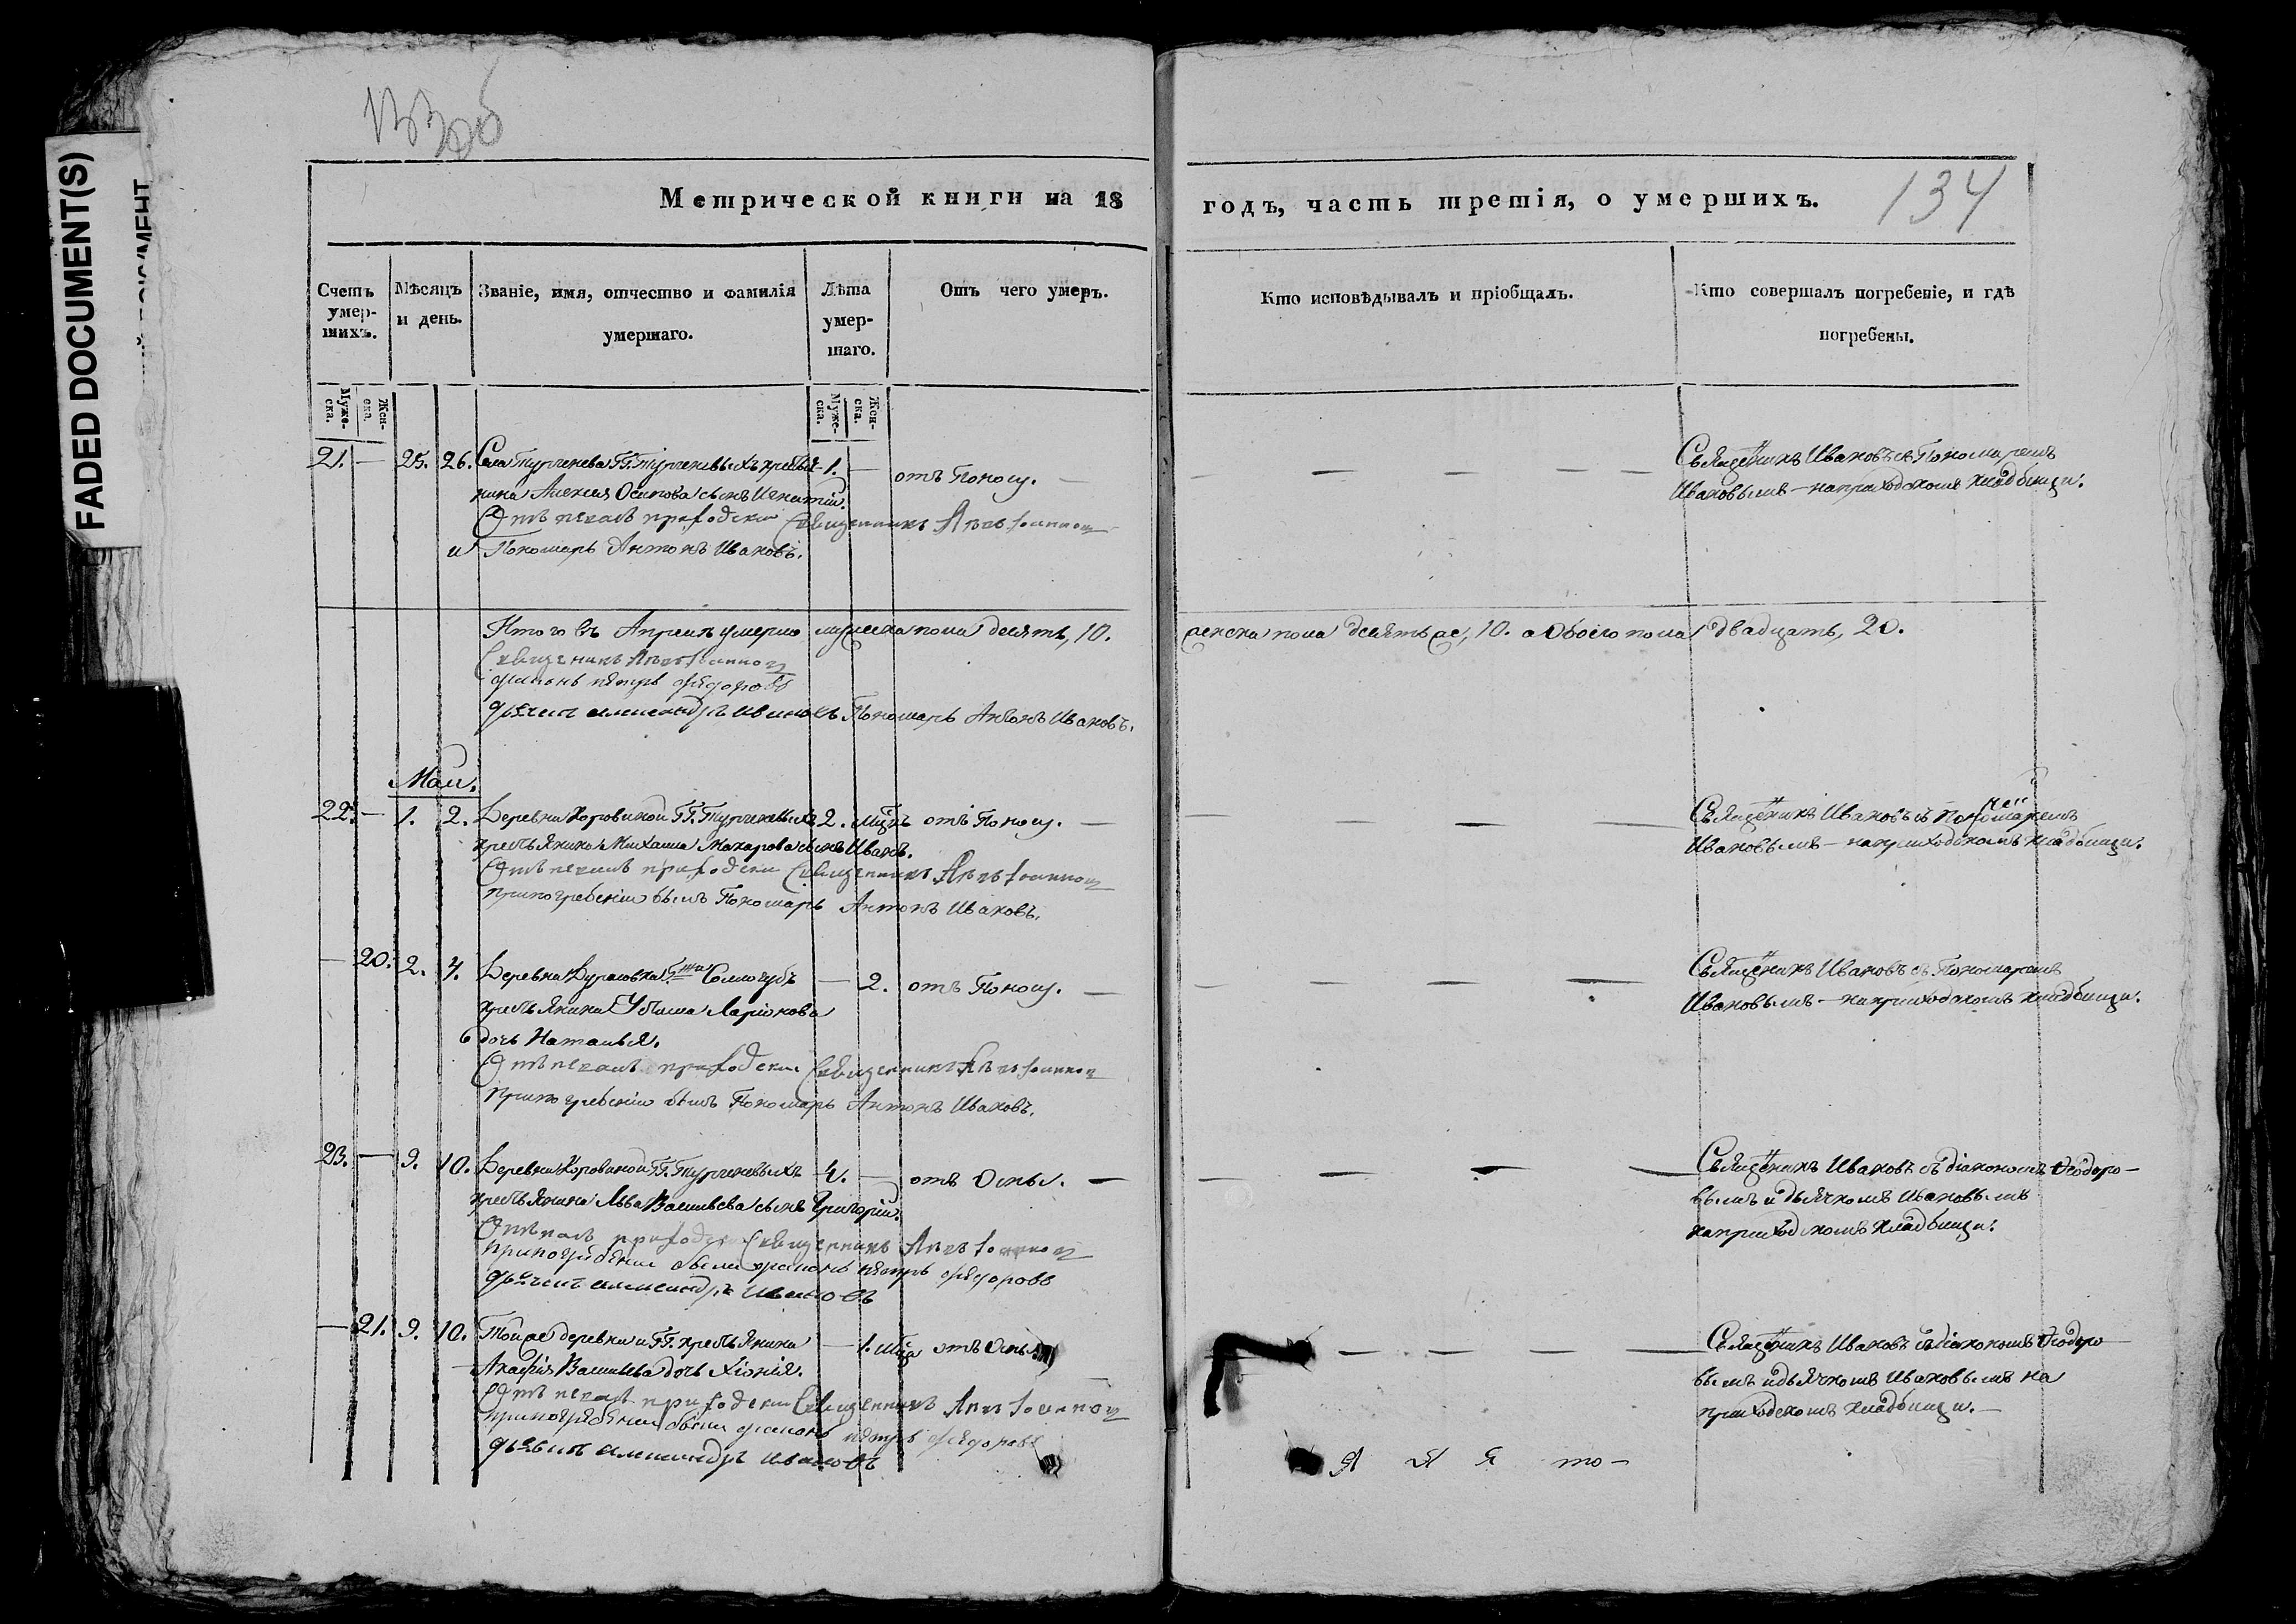 FADED DOCUMENT(S)
133об
134
Метрической книги на 18 годъ, часть третія, о умершихъ.
Счетъ умер-шихъ.
Мѣсяцъ и день.
Званіе, имя, отчество и фамилія умершаго.
Лѣта умер-шаго.
Отъ чего умеръ.
Кто исповѣдывалъ и пріобщалъ.
Кто совершалъ погребеніе, и гдѣ погребены.
Муже-ска.
Жен-ска.
Муже-ска.
Жен-ска.
21. — 25. 26. Села Тургенева ГГ. Тургеневыхъ крестья- 1. — отъ Поносу. — Священникъ Ивановъ съ Пономаремъ
нина Алексея Осипова сынъ Игнатій. Ивановымъ — на приходскомъ кладбищи.
Отпевалъ приходский Священникъ
и Пономарь Антонъ Ивановъ.
Итого въ Апреле умерло мужеска пола десять, 10. женска пола десять же, 10. а обоего пола двадцать, 20.
Священникъ
диаконъ петръ федоровъ
дьячекъ александръ ивановъ Пономарь Антонъ Ивановъ.
Маи.
22. — 1. 2. Деревни Коровиной ГГ. Тургеневыхъ 2. мцъ отъ Поносу. — Священникъ Ивановъ съ Пономаремъ
крестьянина Михаила Макарова сынъ Иванъ. Ивановымъ — на приходскомъ кладбищи.
Отпевалъ приходский Священникъ
при погребении былъ Пономарь Антонъ Ивановъ.
— 20. 2. 4. Деревни Сологубъ — 2. отъ Поносу. — Священникъ Ивановъ съ Пономаремъ
крестьянина Ларіонова Ивановымъ — на приходскомъ кладбищи.
дочь Наталья.
Отпевалъ приходский Священникъ
при погребении былъ Пономарь Антонъ Ивановъ.
23. — 9. 10. Деревни Коровиной ГГ. Тургеневыхъ 4. — отъ Оспы. — Священникъ Ивановъ съ діакономъ Ѳеодоро-
крестьянина Льва Васильева сынъ Григорій. вымъ и дьячкомъ Ивановымъ
на приходскомъ кладбищи.
Отпевалъ приходский Священникъ
при погребении были диаконъ петръ федоровъ
дьячекъ александръ ивановъ
— 21. 9. 10. Той же деревни и ГГ. крестьянина — 1. мца отъ Оспы Священникъ Ивановъ съ діакономъ Ѳеодоро-
Васильева дочь Хіонія. вымъ и дьячкомъ Ивановымъ на
приходскомъ кладбищи. —
Отпевалъ приходский Священникъ
при погребении были диаконъ петръ федоровъ
дьячекъ александръ ивановъ